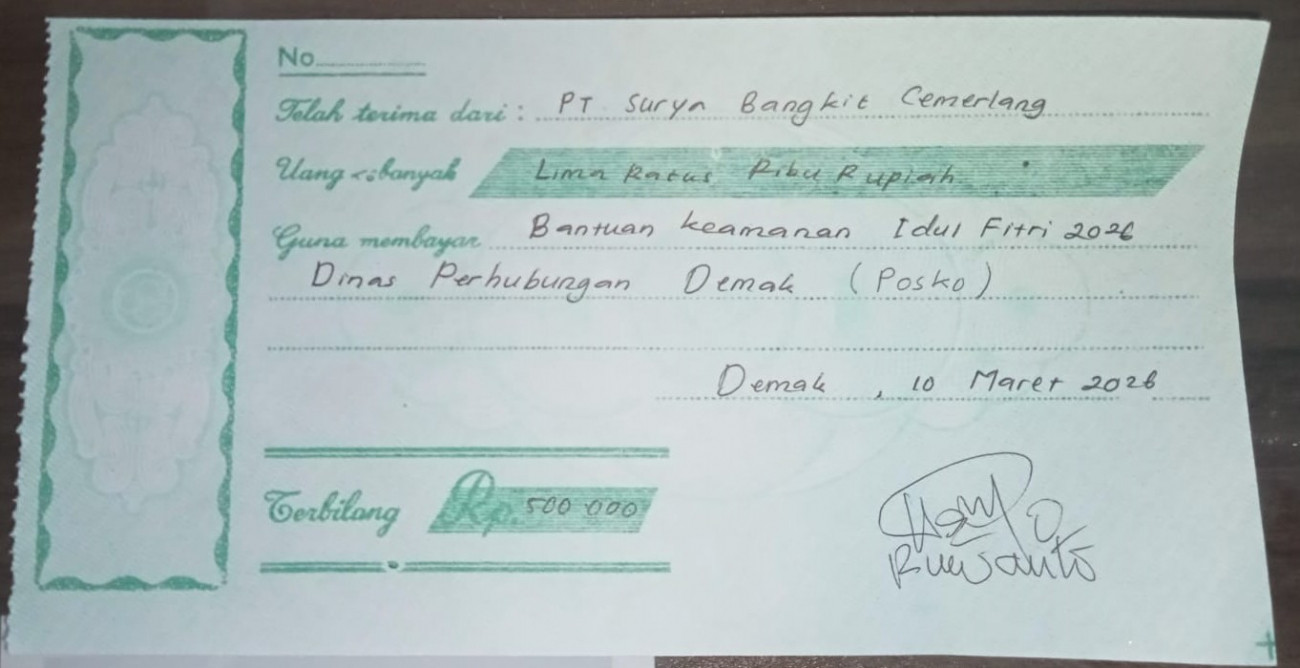 No
Telah terima dari : PT Surya Bangkit Cemerlang
Uang sebanyak Lima Ratus Ribu Rupiah
Guna membayar Bantuan keamanan Idul Fitri 2026
Dinas Perhubungan Demak (Posko)
Demak, 10 Maret 2026
Terbilang Rp. 500 000